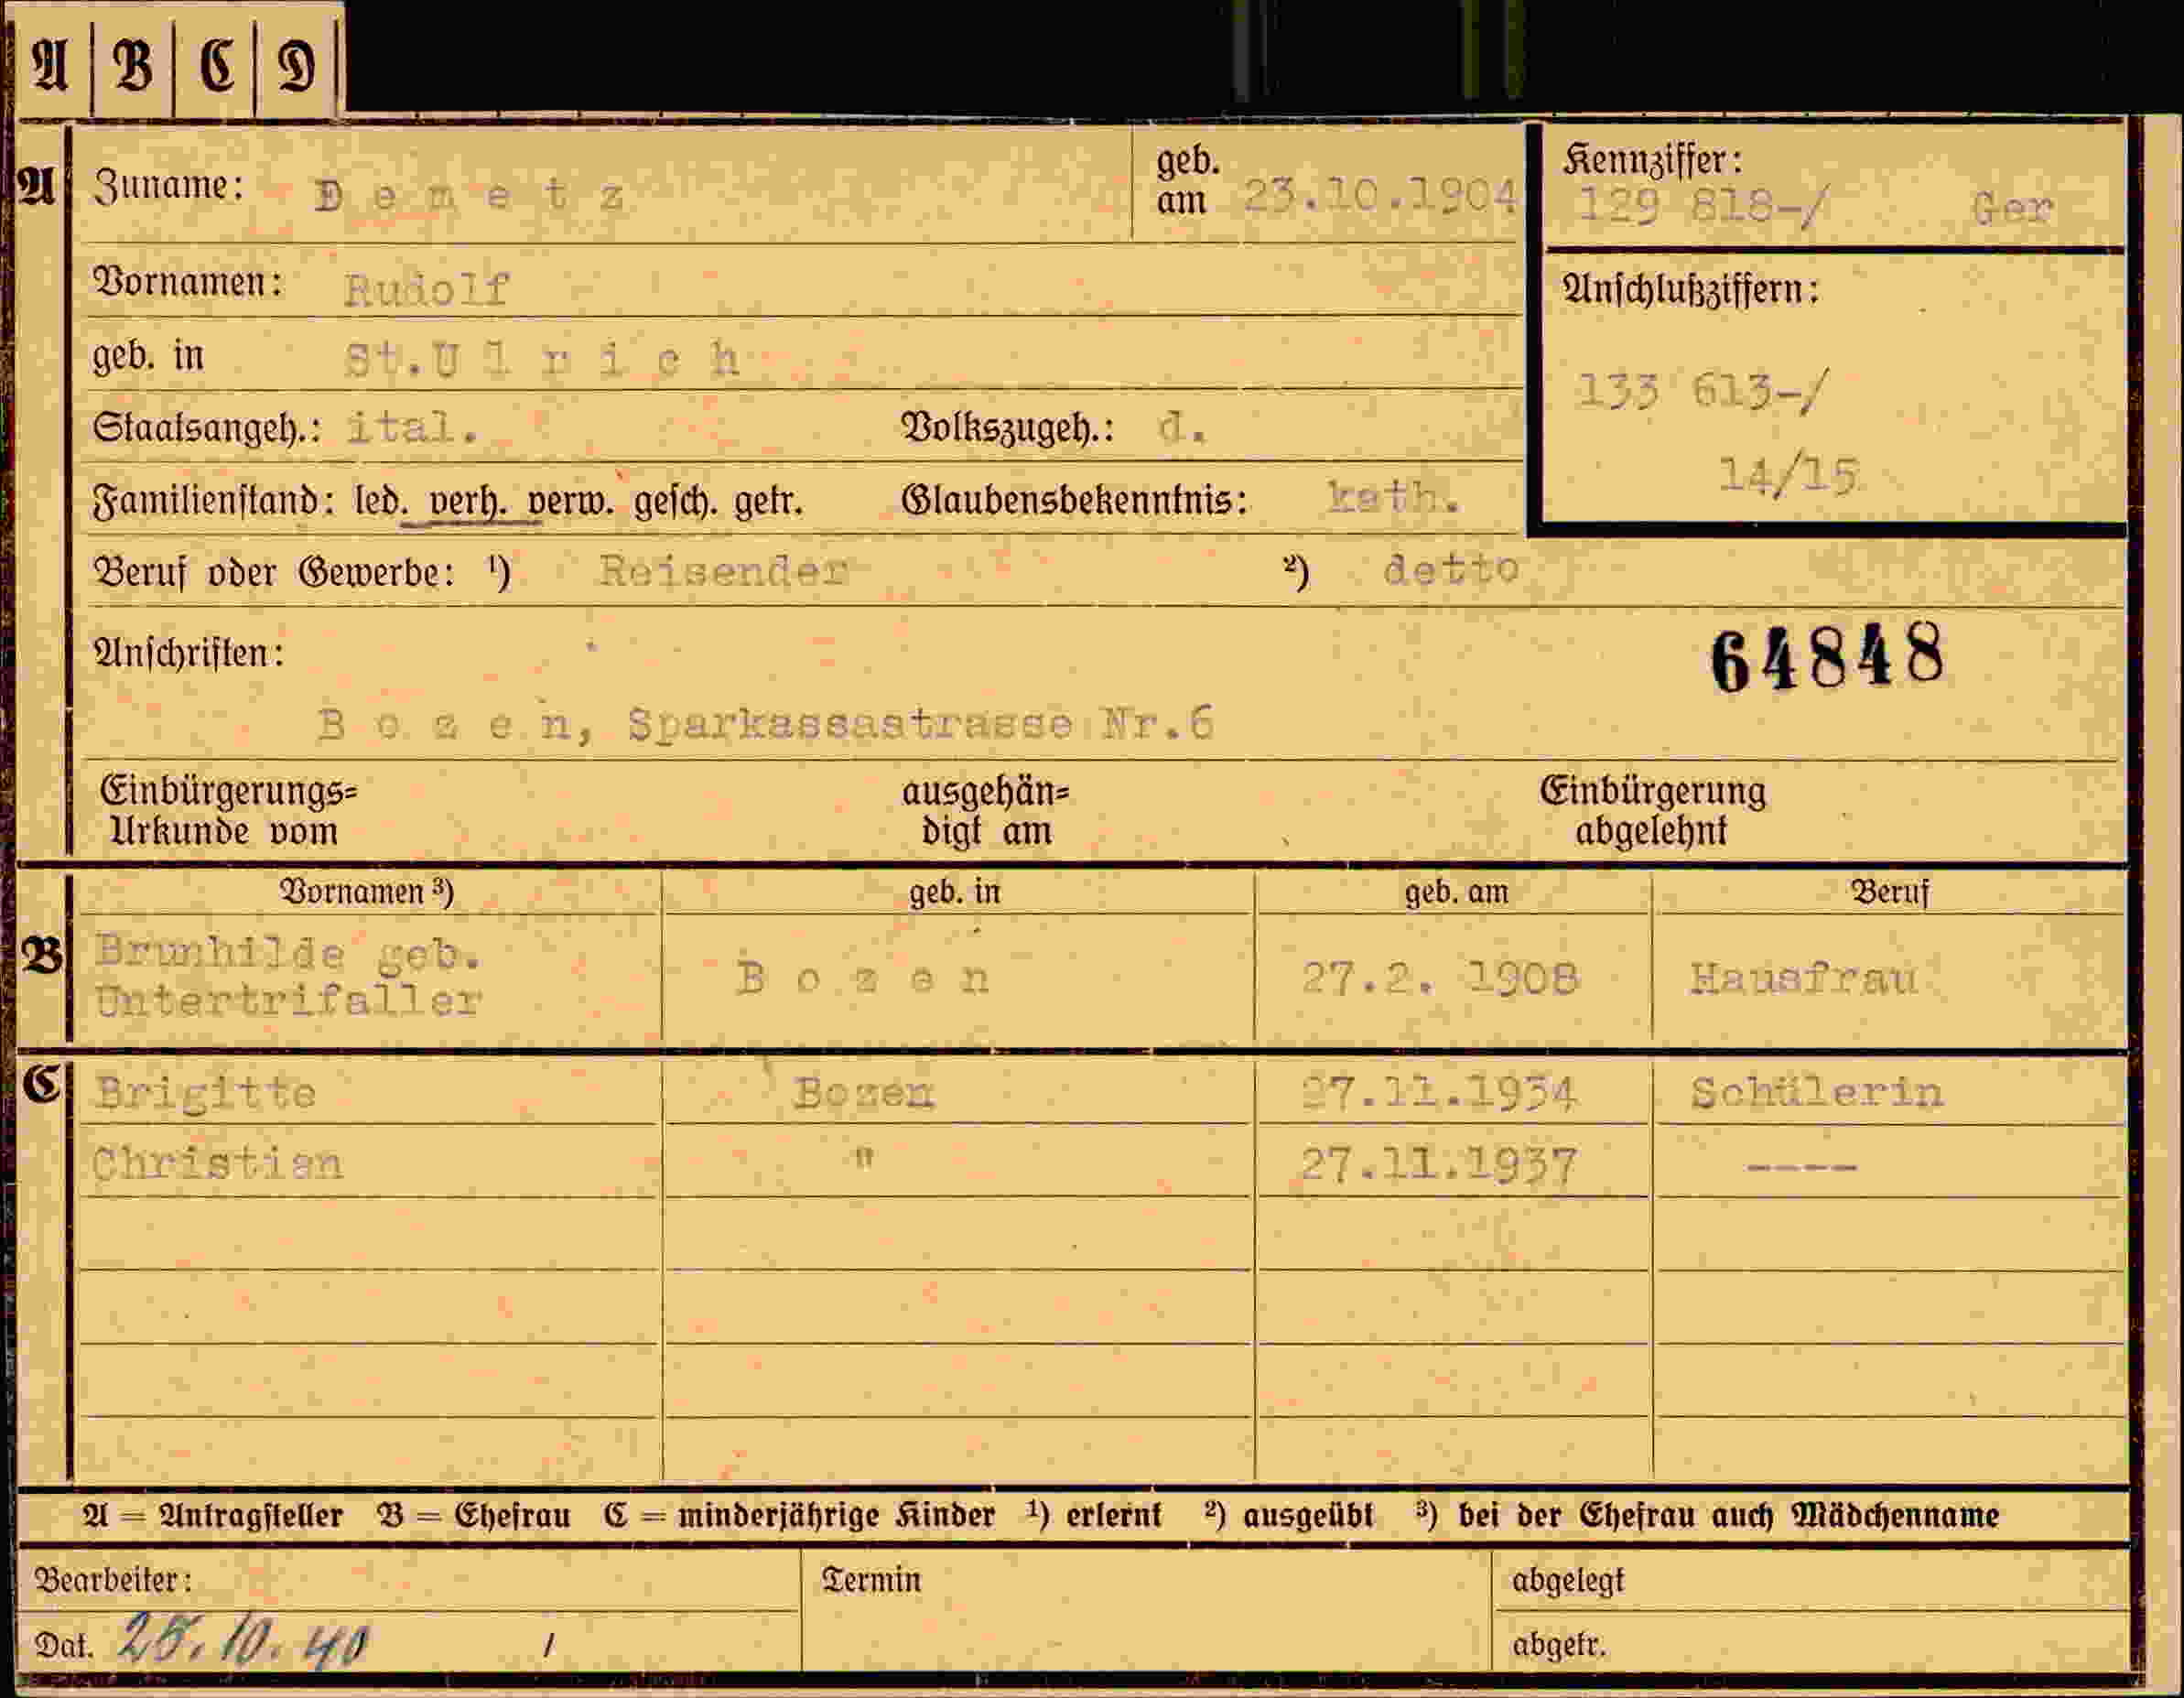 A B C D
A Zuname: Demetz geb. am 23.10.1904 Kennziffer: 129 818-/ Ger
Vornamen: Rudolf Anschlußziffern:
geb. in St.Ulrich 133 613-/
Staatsangeh.: ital. Volkszugeh.: d. 14/15
Familienstand: led. verh. verw. gesch. getr. Glaubensbekenntnis: kath.
Beruf oder Gewerbe: ¹) Reisender ²) detto
Anschriften: 64848
Bozen, Sparkassastrasse Nr.6
Einbürgerungs= ausgehän= Einbürgerung
Urkunde vom digt am abgelehnt
Vornamen ³) geb. in geb. am Beruf
B Brunhilde geb. Bozen 27.2. 1908 Hausfrau
Untertrifaller
C Brigitte Bozen 27.11.1934 Schülerin
Christian " 27.11.1937 ----
A = Antragsteller B = Ehefrau C = minderjährige Kinder ¹) erlernt ²) ausgeübt ³) bei der Ehefrau auch Mädchenname
Bearbeiter: Termin abgelegt
Dat. 25.10.40 / abgetr.